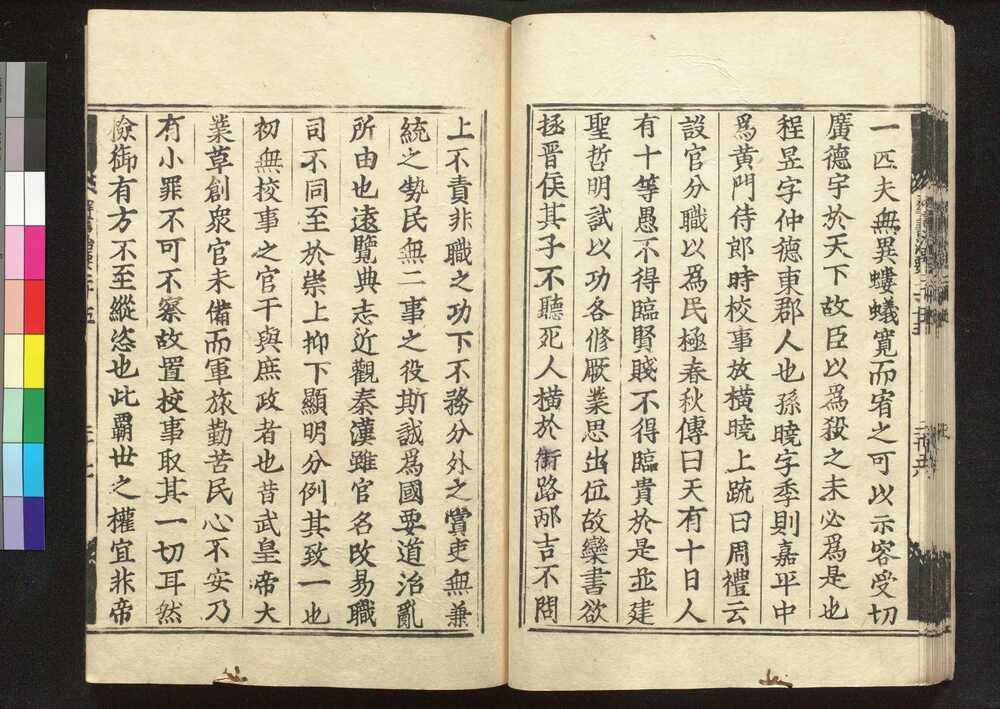 一匹夫無異螻蟻寬而宥之可以示容受切
廣德宇於天下故臣以爲殺之未必爲是也
程昱字仲德東郡人也孫曉字季則嘉平中
爲黃門侍郎時校事放橫曉上疏曰周禮云
設官分職以爲民極春秋傳曰天有十日人
有十等愚不得臨賢賤不得臨貴於是並建
聖哲明試以功各修厥業思出位故欒書欲
拯晉侯其子不聽死人橫於街路邴吉不問
上不責非職之功下不務分外之賞吏無兼
統之勢民無二事之役斯誠爲國要道治亂
所由也遠覽典志近觀秦漢雖官名改易職
司不同至於崇上抑下顯明分例其致一也
初無校事之官干與庶政者也昔武皇帝大
業草創衆官未備而軍旅勤苦民心不安乃
有小罪不可不察故置校事取其一切耳然
儉御有方不至縱恣也此霸世之權宜非帝